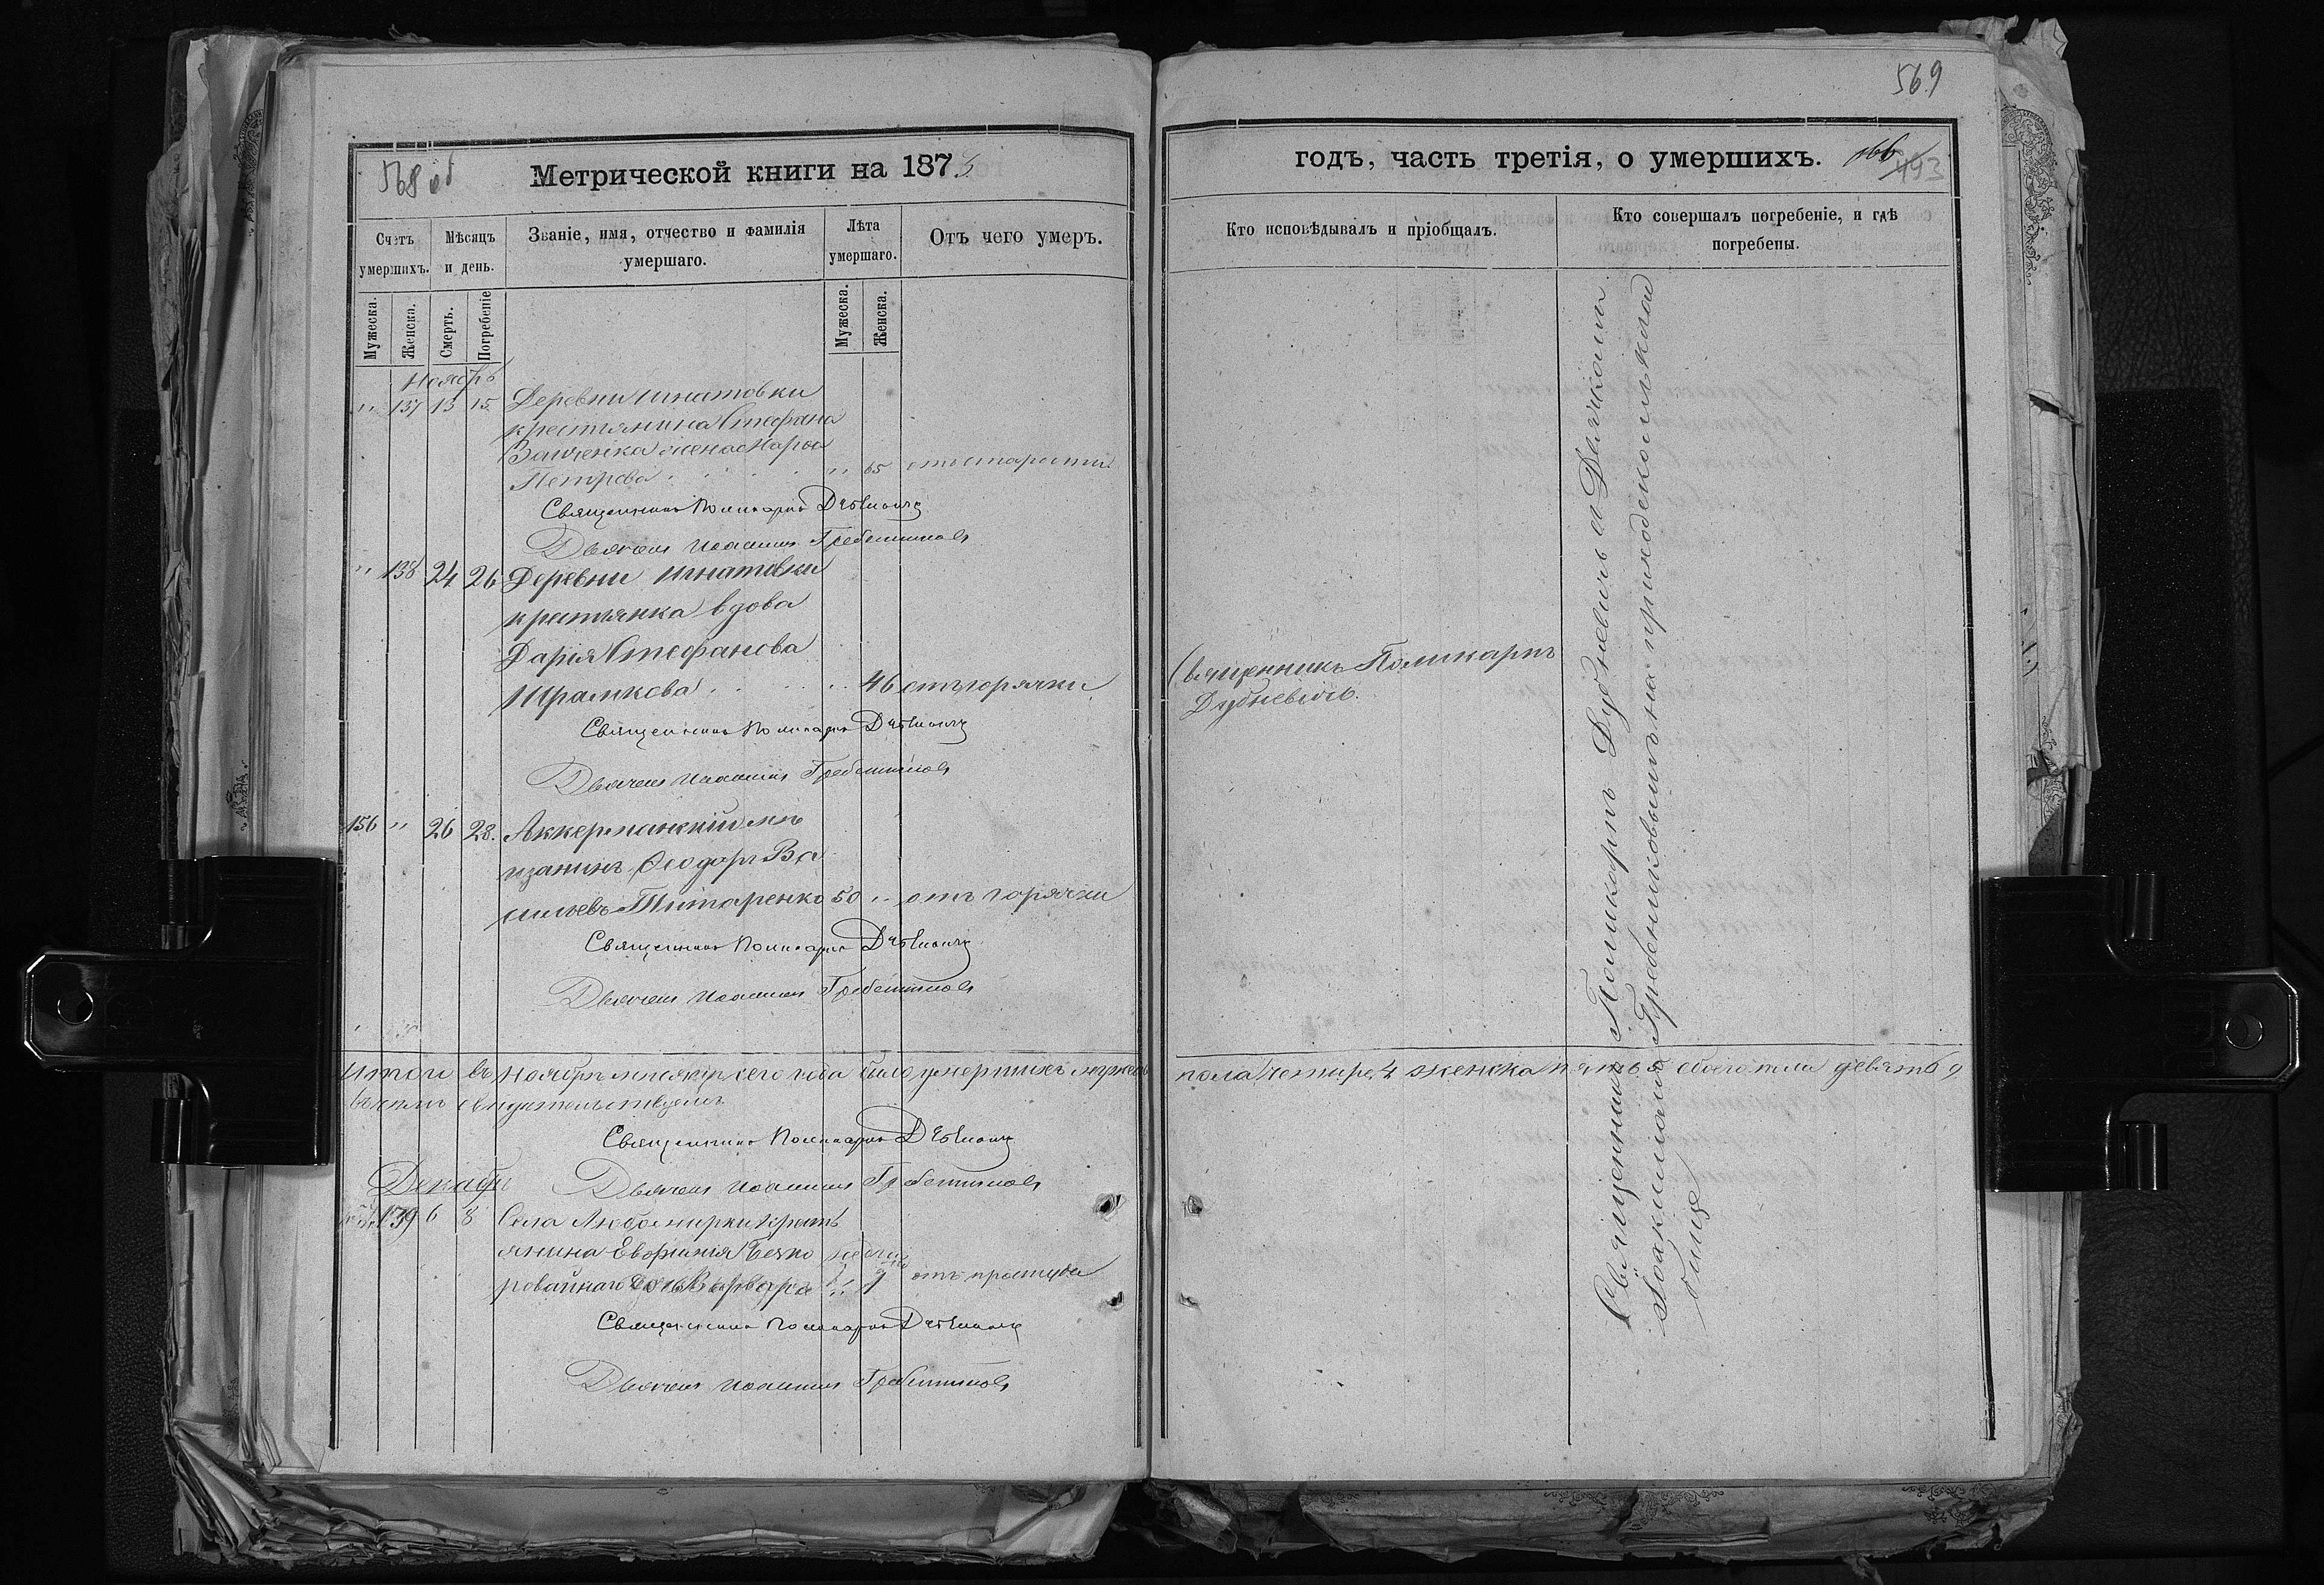 568 об
Метрической книги на 1873
Счетъ умершихъ.
Мѣсяцъ и день.
Званіе, имя, отчество и фамилія умершаго.
Лѣта умершаго.
Отъ чего умеръ.
Мужеска.
Женска.
Смерть.
Погребеніе
Мужеска.
Женска.
Ноябрь
" 137 13 15. Деревни Игнатовки
крестьянина Стефана
жена
Петрова " 65 отъ старости
Священникъ Поликарпъ Дубневичъ
Дьячекъ Иоакимъ Гребенниковъ
" 138 24 26 Деревни Игнатовки
крестьянка вдова
Дарія Стефанова
Шрамкова 46 отъ горячки
Священникъ Поликарпъ Дубневичъ
Дьячекъ Иоакимъ Гребенниковъ
156 " 26 28. Аккерманскій мѣ
щанинъ Ѳеодоръ Ва
сильевъ Титаренко 50 " отъ горячки
Священникъ Поликарпъ Дубневичъ
Дьячекъ Иоакимъ Гребенниковъ
Итого въ Ноябрѣ мѣсяцѣ сего года было умершихъ мужеск
въ чемъ свидѣтельствуемъ
Священникъ Поликарпъ Дубневичъ
Декабрь
Дьячекъ Иоакимъ Гребенниковъ
139 6 8 Села Любомирки крестъ
янина Евфимія
дочь Варвара отъ простуды
Священникъ Поликарпъ Дубневичъ
Дьячекъ Иоакимъ Гребенниковъ
569
годъ, часть третія, о умершихъ. 166
493
Кто исповѣдывалъ и пріобщалъ.
Кто совершалъ погребеніе, и гдѣ погребены.
Священникъ Поликарпъ
Дубневичъ.
Священникъ Поликарпъ Дубневичъ съ Дьячкомъ
Іоакимомъ Гребенниковымъ на приходскомъ клад
бищѣ
пола четыре 4 женска пять 5 обоего пола девять 9